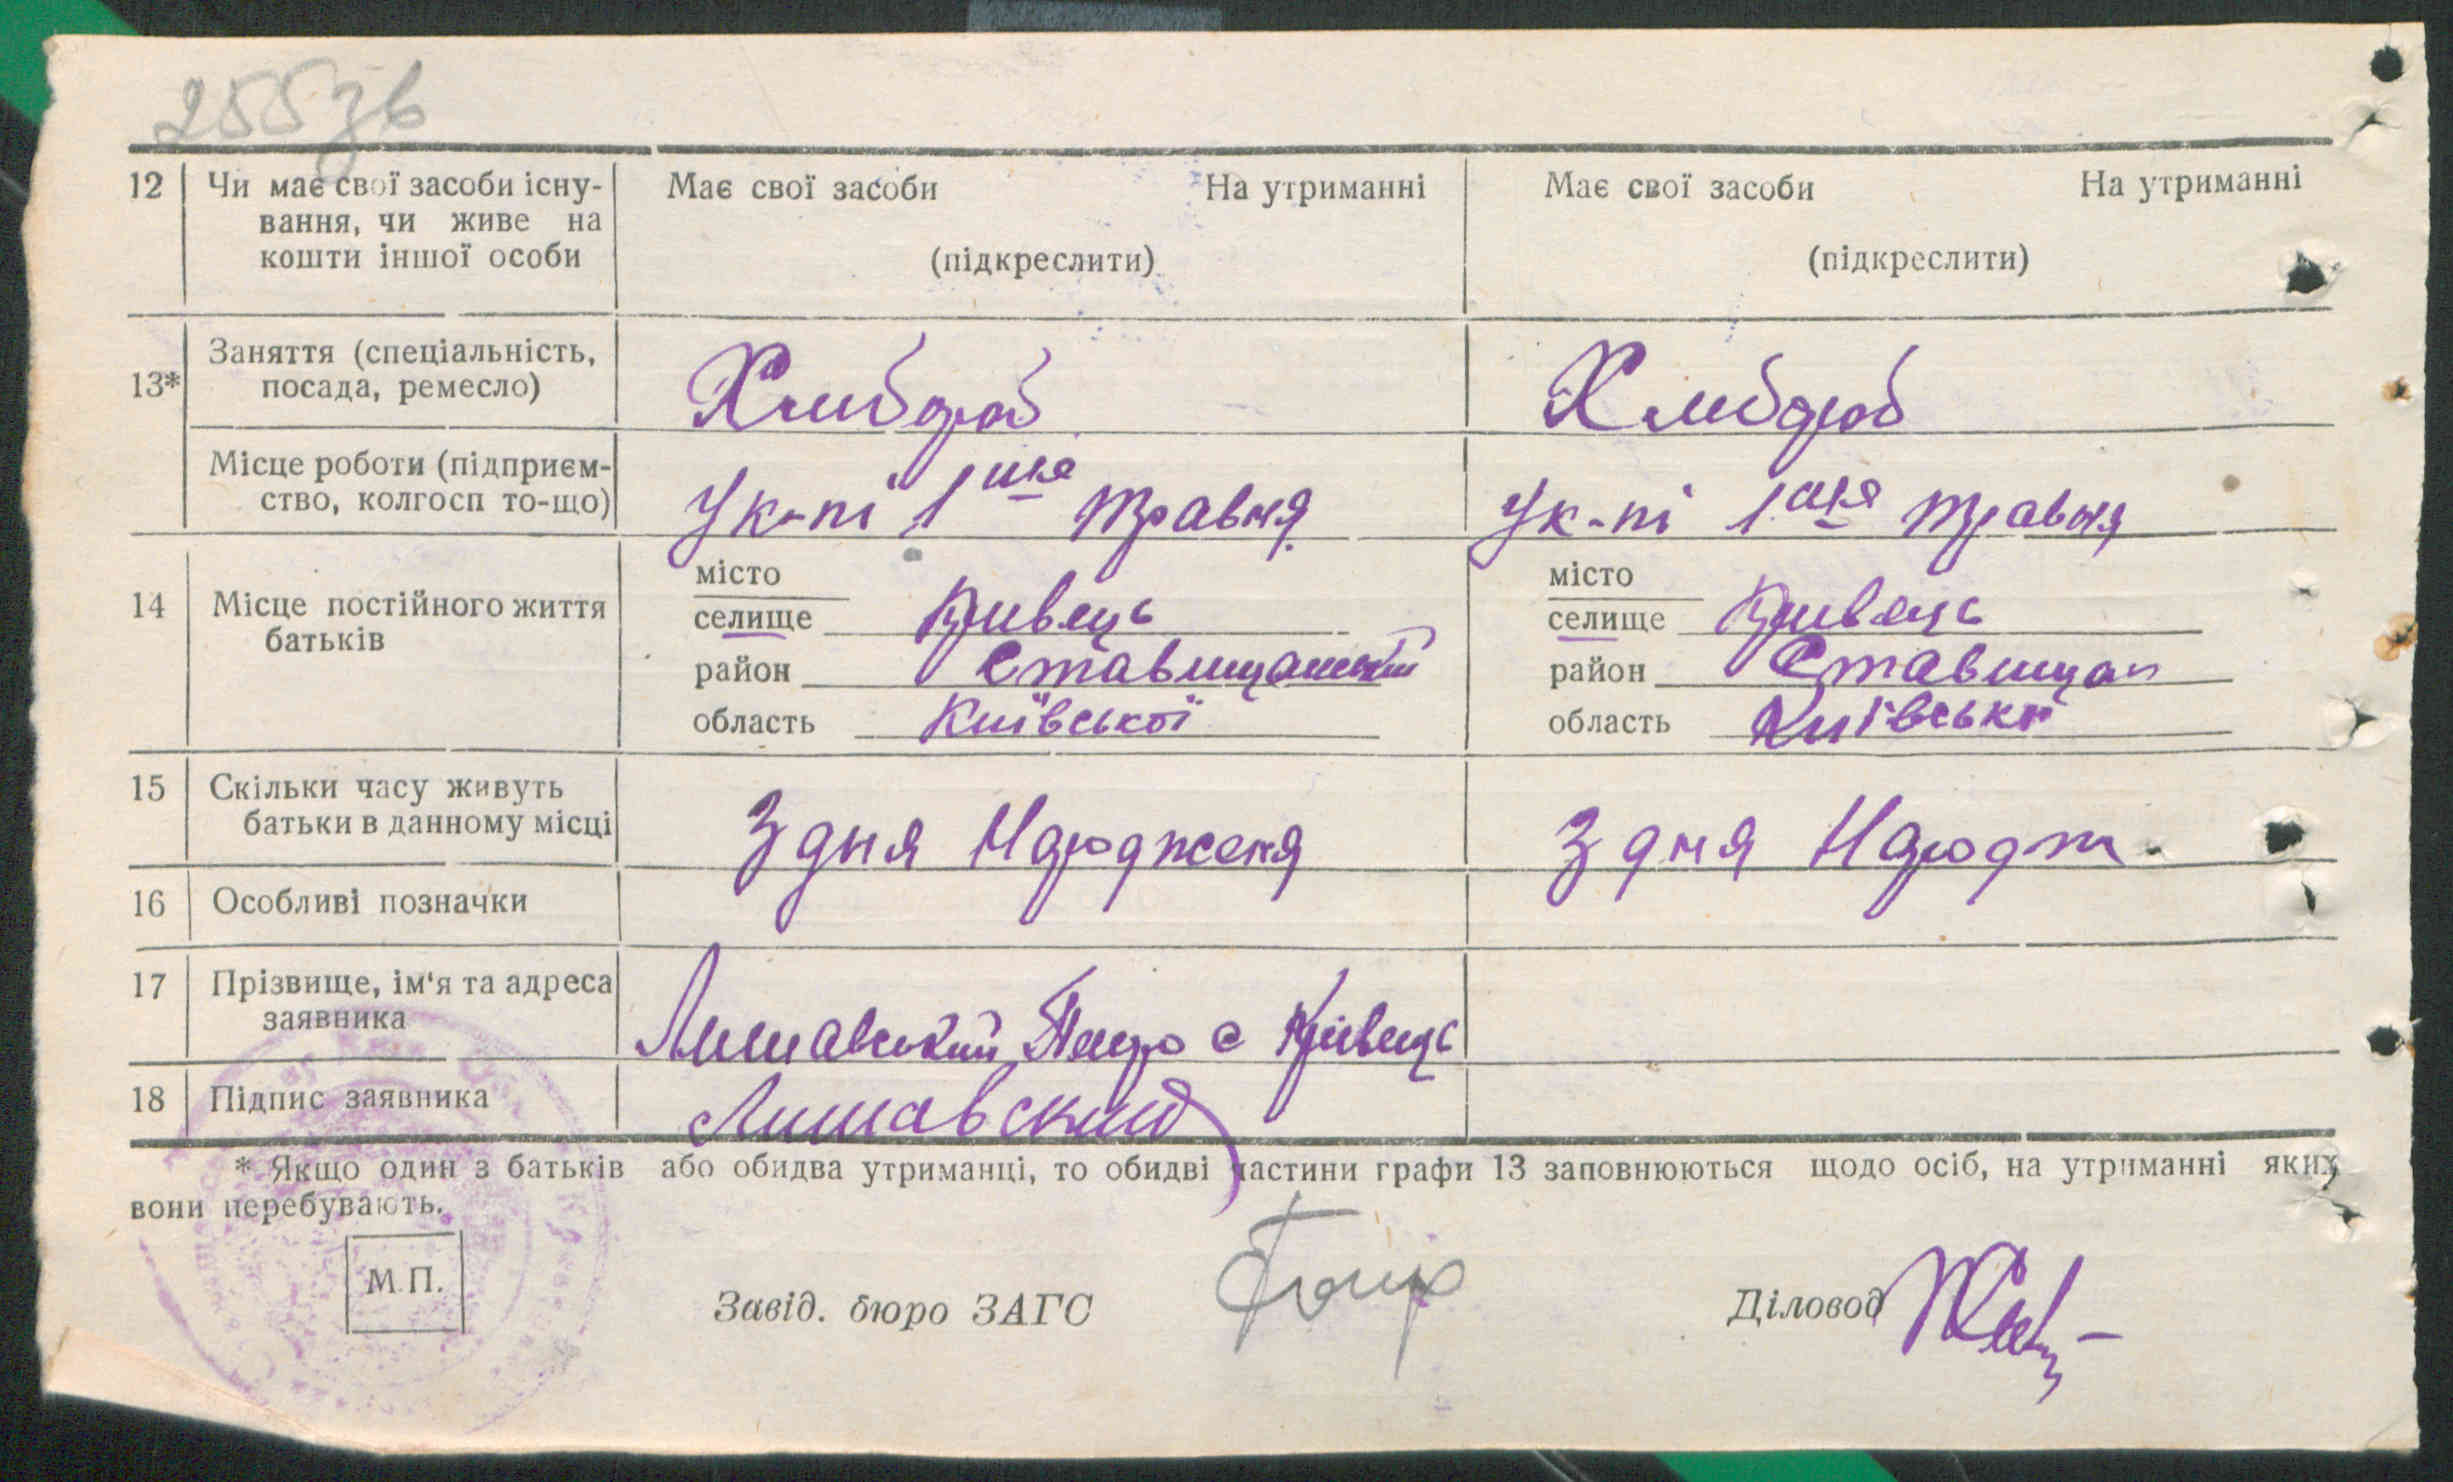 255зв
12 Чи має свої засоби існу- Має свої засоби На утриманні Має свої засоби На утриманні
вання, чи живе на
кошти іншої особи (підкреслити) (підкреслити)
13* Заняття (спеціальність,
посада, ремесло) Хлибороб Хлибороб
Місце роботи (підприєм-
ство, колгосп то-що) Ук-пі 1шя травня Ук-пі 1шя травня
місто місто
14 Місце постійного життя селище Кривець селище Кривець
батьків район Ставищанський район Ставищан
область Київської область Київські
15 Скільки часу живуть
батьки в данному місці З дня Народженя З дня Народж.
16 Особливі позначки
17 Прізвище, ім'я та адреса
заявника Лишавський Петро с Кривець
18 Підпис заявника Лишавский
* Якщо один з батьків або обидва утриманці, то обидві частини графи 13 заповнюються щодо осіб, на утриманні яких
вони перебувають.
М.П.
Завід. бюро ЗАГС Діловод